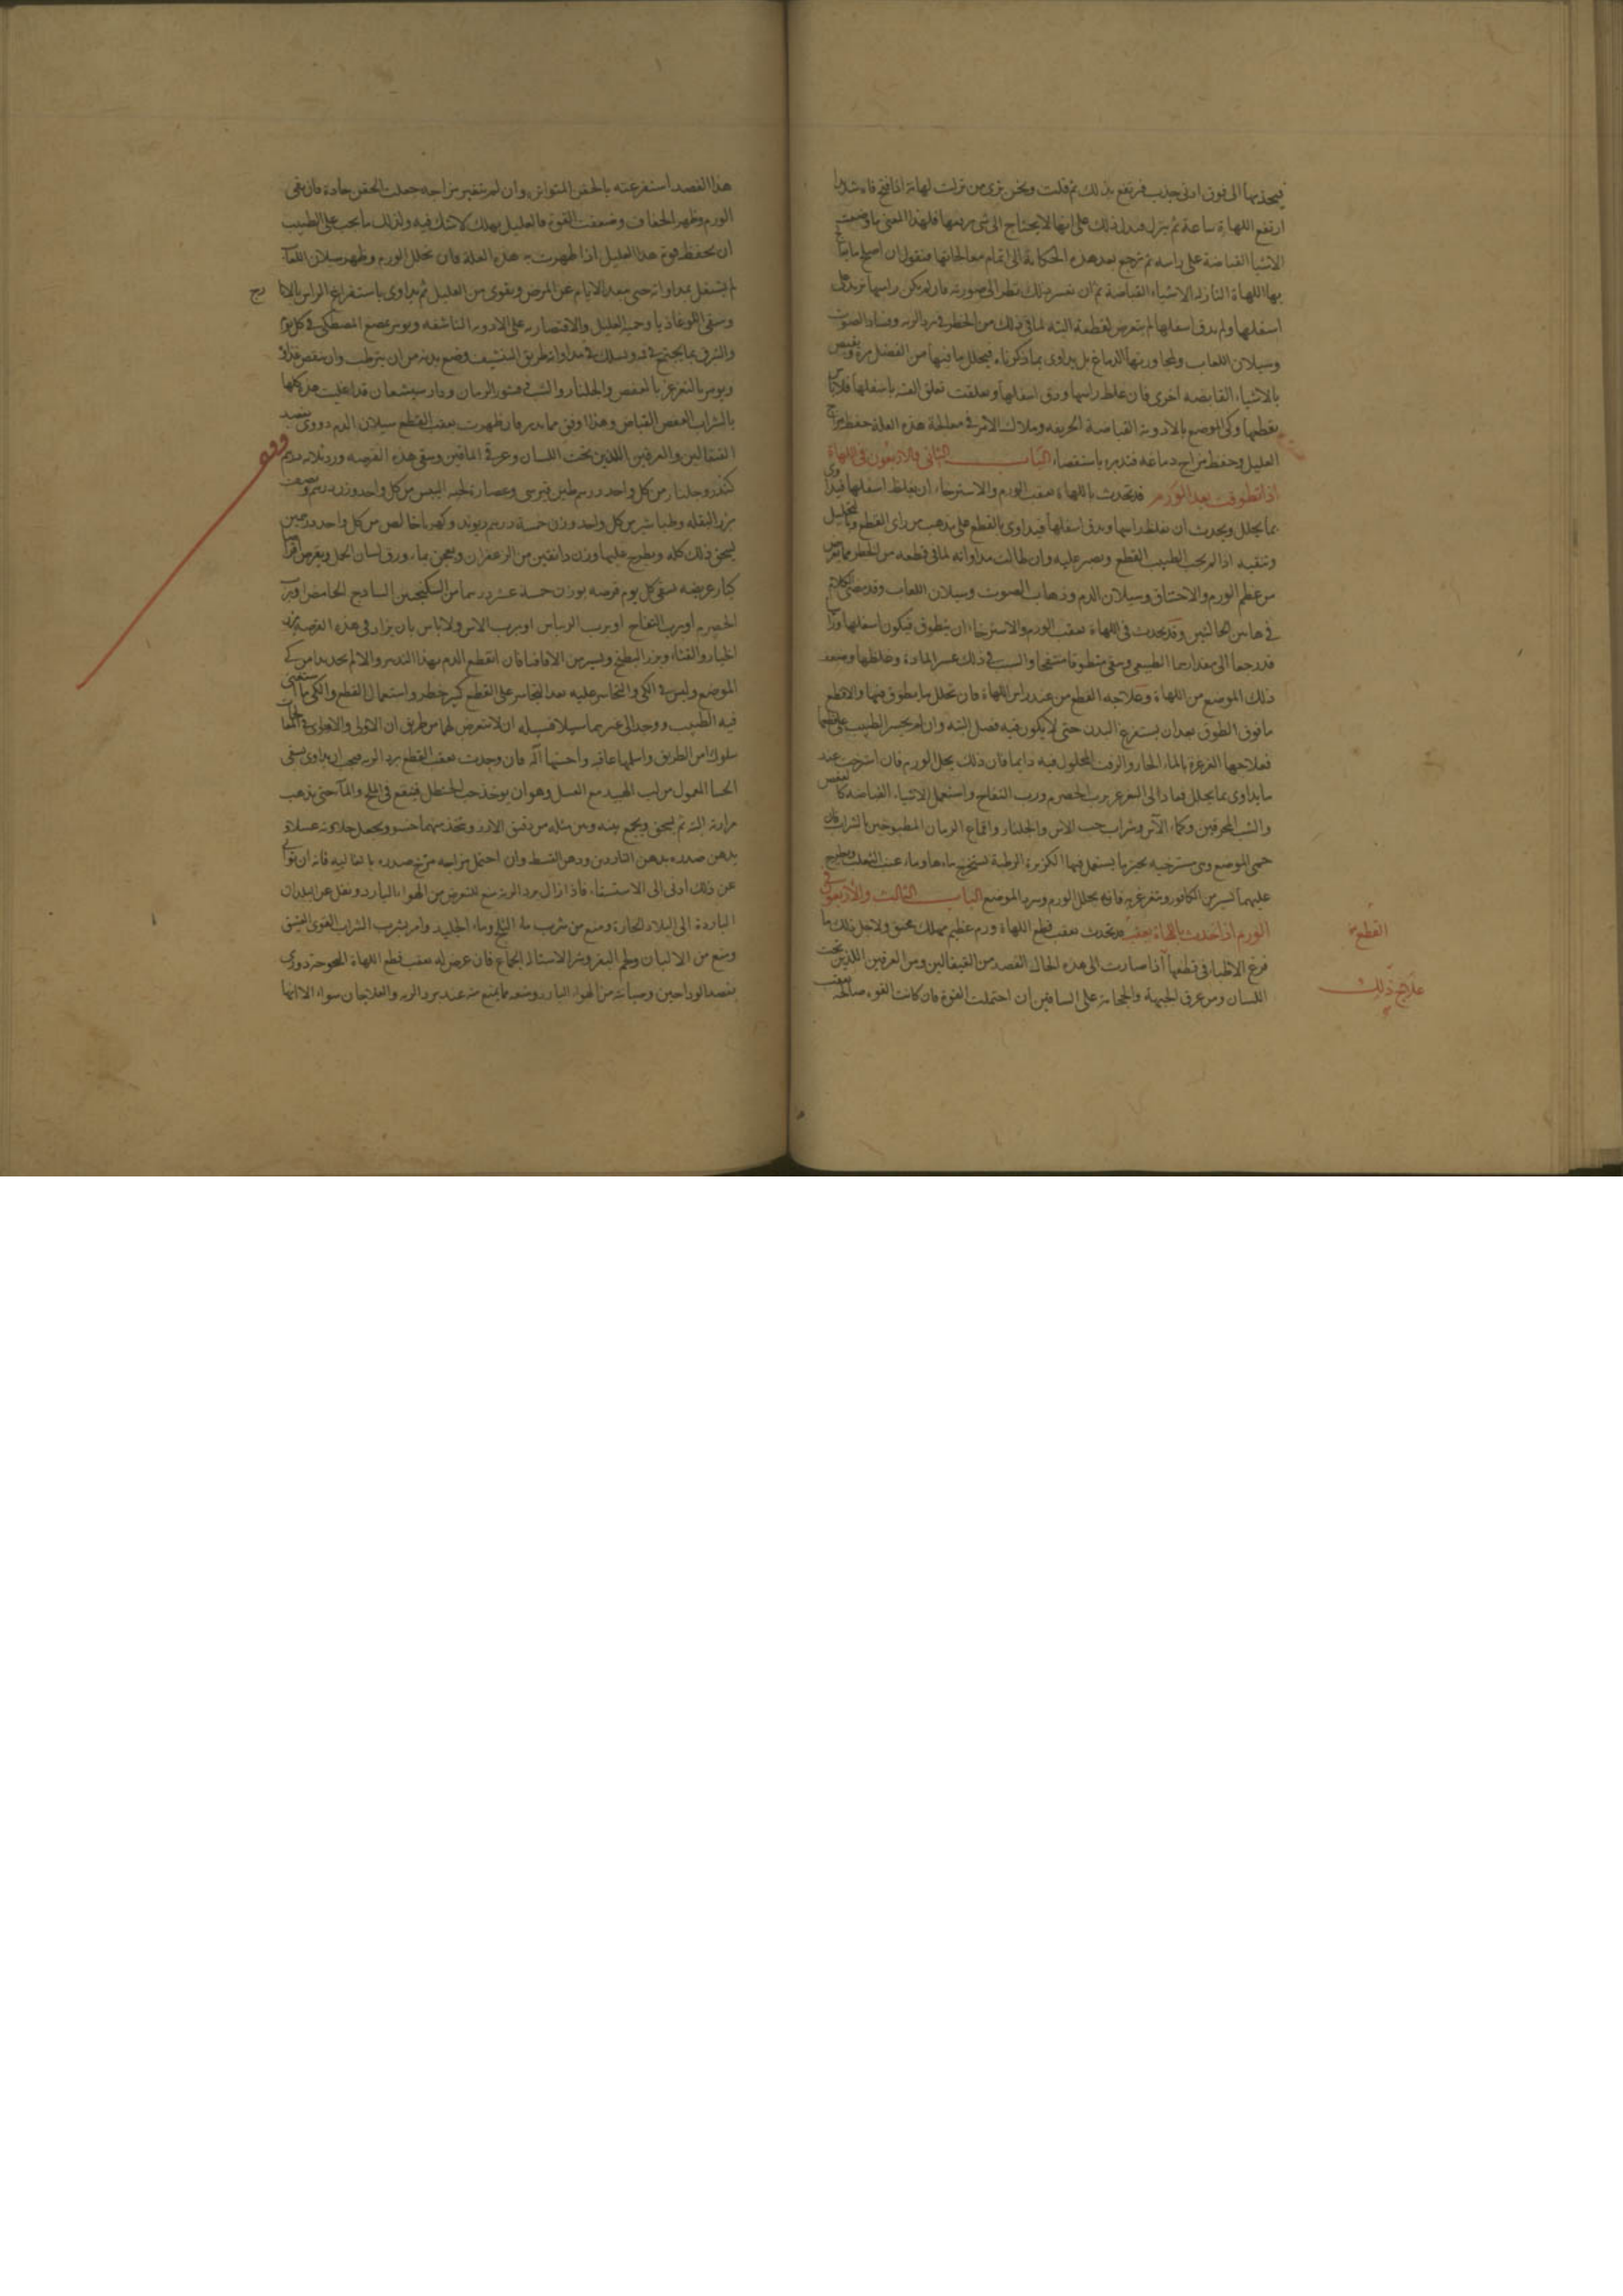 فيجذبها الى فوق ادنى جذب فترتفع بذلك ثم قلت ونحن نرى من نزلت لهاته اذا فتح فاه شديدا
ارتفع اللهاة ساعة ثم ينزل فيدل ذلك على انها لا يحتاج الى شئ يرفعها فلهذا المعنى ما وضعت
الاشيا القباضة على راسه ثم نرجع بعد هذه الحكاية الى اتمام معالجاتها فنقول ان اصلح ما
بها اللهاة النازلة الاشياء القباضة ثم ان تعسر ذلك نظر الى صورته فان لم يكن راسها
اسفلها ولم يدق اسفلها لم يتعرض لقطعة البتة لما في ذلك من الخطر في برد الرية وفساد الصوت
وسيلان اللعاب ولمجاورتها الدماغ بل يداوى بما ذكرناه فيحلل ما فيها من الفضل مرة ويقبض
بالاشياء القابضة اخرى فان غلظ راسها ودق اسفلها وتعلقت تعلق العنبة باسفلها
بقطعها وكي الموضع بالادوية القباضة الحريفة وملاك الامر في معالجة هذه العلة حفظ مزاج
العليل وحفظ مزاج دماغه فتدبره باستقصاء الباب الثاني والاربعون في اللهاة
اذا تطوقت بعد الورم قد تحدث باللهاة بعقب الورم والاسترخاء ان يغلظ اسفلها
بما يحلل ويحدث ان يغلظ راسها ويدق اسفلها فيداوى بالقطع على مذهب من راى القطع
وتنقيه اذا لم يحب الطبيب القطع ويصبر عليه وان طالت مداواته لما في قطعه من الخطر
من عظم الورم والاختناق وسيلان الدم وذهاب الصوت وسيلان اللعاب وقد مضى الكلام
في هاتين الحالتين وقد يحدث في اللهاة بعقب الورم والاسترخاء ان يتطوق فيكون اسفلها
قد رجعا الى مقدارهما الطبيعي وبقي متطوقا منتفخا والسبب في ذلك عسر المادة وغلظها
ذلك الموضع من اللهاة وعلاجه الفصد من عند راس اللهاة فان تحلل ما يتطوق فيها والا قطع
ما فوق الطوق بعد ان يستفرغ البدن حتى لا يكون فيه فضل البتة وان لم يجسر الطبيب على قطعها
فعلاجها الغرغرة بالماء الحار والزفت المحلول فيه دايما فان ذلك يحلل الورم فان استرخت عند
ما يداوى بما يحلل فعاد الى التغرغر برب الحصرم ورب التفاح واستعمل الاشياء القباضة كالعفص
والشب المحرقين وكماء الآس وشراب حب الاس والجلنار واقماع الرمان المطبوخين بالشراب فان
حمى الموضع وهي مسترخية بحيز ما يستعمل فيها الكزبرة الرطبة يستخرج ماءها وماء عنب الثعلب ويطرح
عليهما يسير من الكافور ويتغرغر به فانه يحلل الورم ويبرد الموضع الباب الثالث والاربعون في
الورم اذا حدث باللهاة بعقب قد تحدث بعقب قطع اللهاة ورم عظيم مهلك مخنق ولاجل ذلك ما
فزع الاطبا في قطعها اذا صارت الى هذه الحال الفصد من القيفالين ومن العرقين اللذين تحت
اللسان ومن عرق الجبهة والحجامة على الساقين ان احتملت القوة فان كانت القوة صالحة بعقب
القطع
علاج ذلك
هذا الفصد استفرغته بالحقن المتواترة وان لم يتغير مزاجه جعلت الحقن حادة فان بقي
الورم وظهر الجفاف وضعفت القوة فالعليل يهلك لا شك فيه ولذلك ما يجب على الطبيب
ان يحفظ قوة هذا العليل اذا ظهرت به هذه العلة فان تحلل الورم وظهر سيلان اللعاب
لم يشتغل بمداواته حتى يبعد الايام عن المرض ويقوى من العليل ثم يداوى باستفراغ الراس
وسقى اللوغاذيا وحمية العليل والاقتصار به على الادوية الناشفة ويومر بمضغ المصطكى في كل يوم
والتبزق بما يجتمع في فيه ويسلك في مداواته طريق التنشيف ومنع بدنه من ان يترطب
ويومر بالتغرغر بالعفص والجلنار والشب وقشور الرمان ودارسيشعان قد اغليت هذه كلها
بالشراب العفص القباض وهذا اوفق ما يدبر فان ظهرت بعقب القطع سيلان الدم دووى بفصد
القيفالين والعرقين اللذين تحت اللسان وعرقي الماقين وسقى هذه القرصة ورد ثلاثة دراهم
كندر وجلنار من كل واحد درهم طين قبرسي وعصارة لحية التيس من كل واحد وزن درهم ونصف
بزر البقلة وطباشير من كل واحد وزن خمسة دراهم ريوند وكهربا خالص من كل واحد درهمين
يسحق ذلك كله ويطرح عليها وزن دانقين من الزعفران ويعجن بماء ورق لسان الحمل ويقرص اقراصا
كبار عريضة يسقى كل يوم قرصة بوزن خمسة عشر درهما من السكنجبين الساذج الحامض او برب
الحصرم او برب التفاح او برب الريباس او برب الاس ولا باس بان يزاد في هذه القرصة بزر
الخيار والقثاء وبزر البطيخ ويسير من الاقاقيا فان انقطع الدم بهذا التدبير والا لم يجد بدا من كي
الموضع وليس في الكي والتجاسر عليه بعد التجاسر على القطع كبير خطر واستعمال القطع والكي ما استغنى
فيه الطبيب ووجد الى غيرهما سبيلا فسبيله ان لا يتعرض لهما من طريق ان الاولى والاحرى في المعالجات
سلوك امن الطريق واسلمها عاقبة واحسنها آلة فان وجدت بعقب القطع برد الرية فيجب ان يداوى بسقي
الحسا المعمول من لب الهبيد مع العسل وهو ان يوخذ حب الحنظل فينقع في الملح والماء حتى يذهب
مرارته البتة ثم يسحق ويجمع بينه وبين مثله من دقيق الارز ويتخذ منهما حسو ويجعل حلاوته عسلا
يدهن صدره بدهن الناردين ودهن القسط وان احتمل مزاجه مرخ صدره بالغالية فانه ان توانى
عن ذلك ادنى الى الاستسقاء فاذا زال برد الرية منع التعرض من الهواء البارد ونقل عن البلدان
الباردة الى البلاد الحارة ومنع من شرب ماء الثلج وماء الجليد وامر بشرب الشراب القوي العتيق
ومنع من الالبان ولحم البقر وبتر الاستلذاذ الجماع فان عرض له بعقب قطع اللهاة البحوحة دووى
بفصد الوداجين وصيانة من الهواء البارد ومنعه ما يمنع منه عند برد الرية والعلاجان سواء الا انها